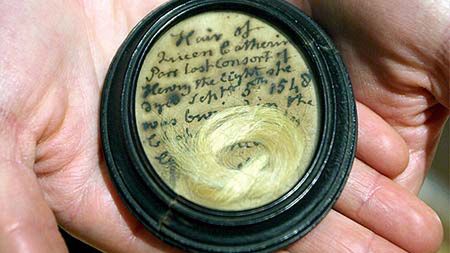 Hair of
Queen Catherin
Parr Last Consort of
Henry the Eight she
dyed Septr 5 1548
was in the